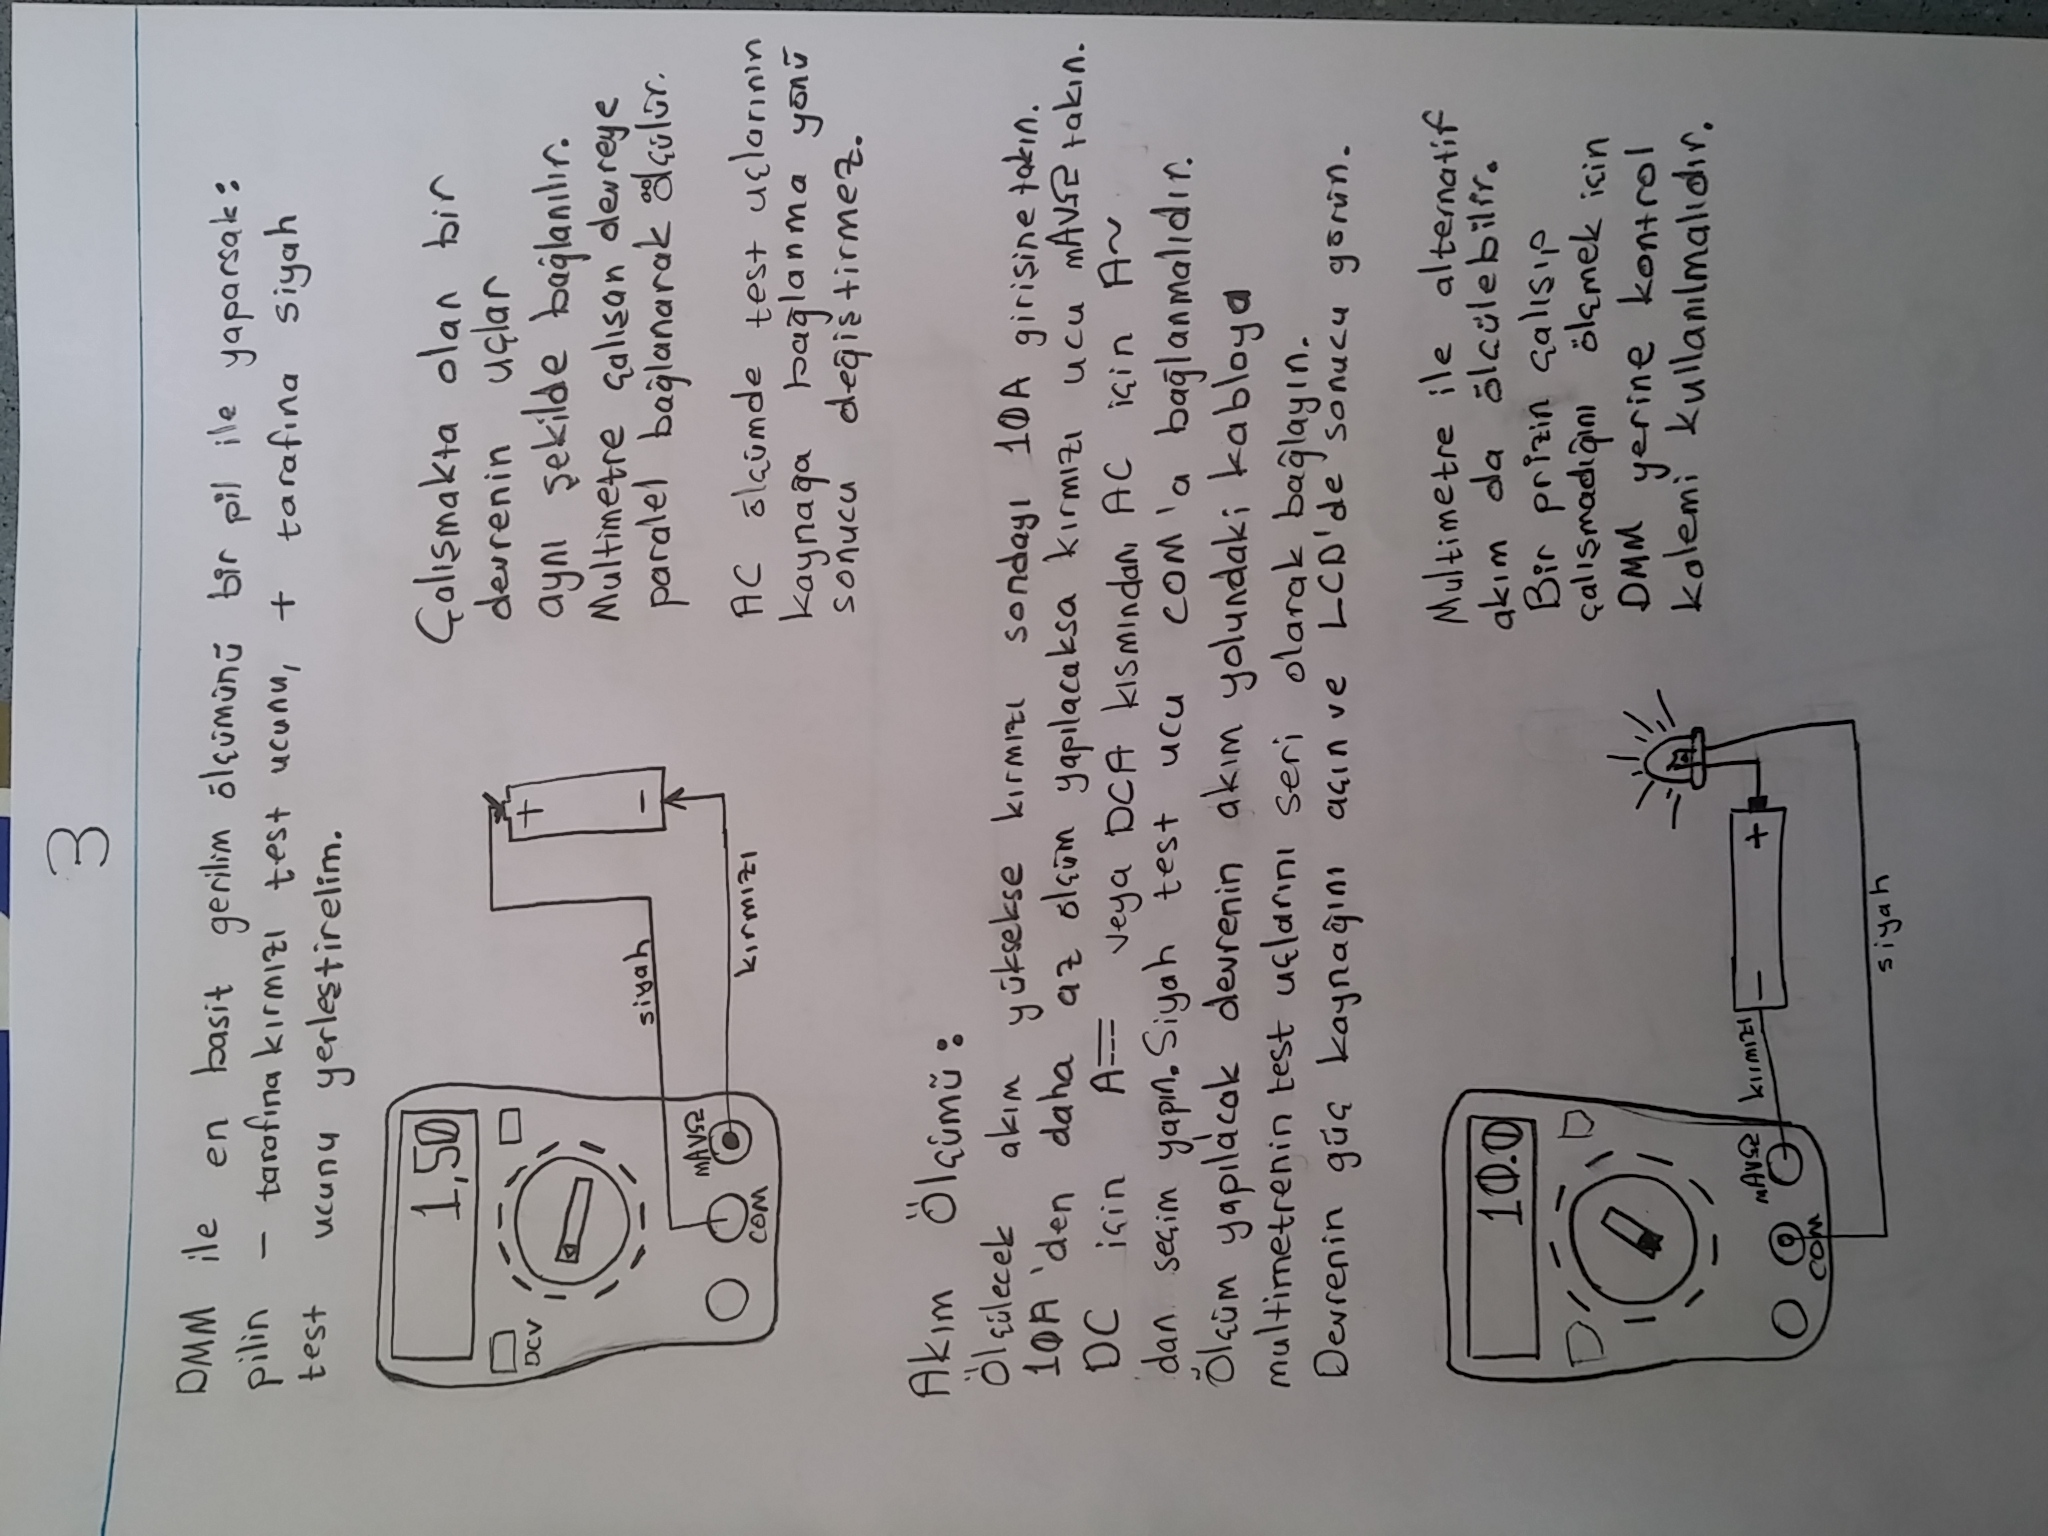 3
DMM ile en basit gerilim ölçümünü bir pil ile yaparsak:
pilin - tarafına kırmızı test ucunu, + tarafına siyah
test ucunu yerleştirelim.
1,50
DCV
+
-
siyah
mAVΩ
COM
kırmızı
Çalışmakta olan bir
devrenin uçlar
aynı şekilde bağlanılır.
Multimetre çalışan devreye
paralel bağlanarak ölçülür.
AC ölçümde test uçlarının
kaynağa bağlanma yönü
sonucu değiştirmez.
Akım Ölçümü:
Ölçülecek akım yüksekse kırmızı sondayı 10A girişine takın.
10A 'den daha az ölçüm yapılacaksa kırmızı ucu mAVΩ takın.
DC için A⎓ veya DCA kısmından, AC için A~
dan seçim yapın. Siyah test ucu COM'a bağlanmalıdır.
Ölçüm yapılacak devrenin akım yolundaki kabloya
multimetrenin test uçlarını seri olarak bağlayın.
Devrenin güç kaynağını açın ve LCD'de sonucu görün.
10.0
mAVΩ
COM
kırmızı
- +
siyah
Multimetre ile alternatif
akım da ölçülebilir.
Bir prizin çalışıp
çalışmadığını ölçmek için
DMM yerine kontrol
kalemi kullanılmalıdır.